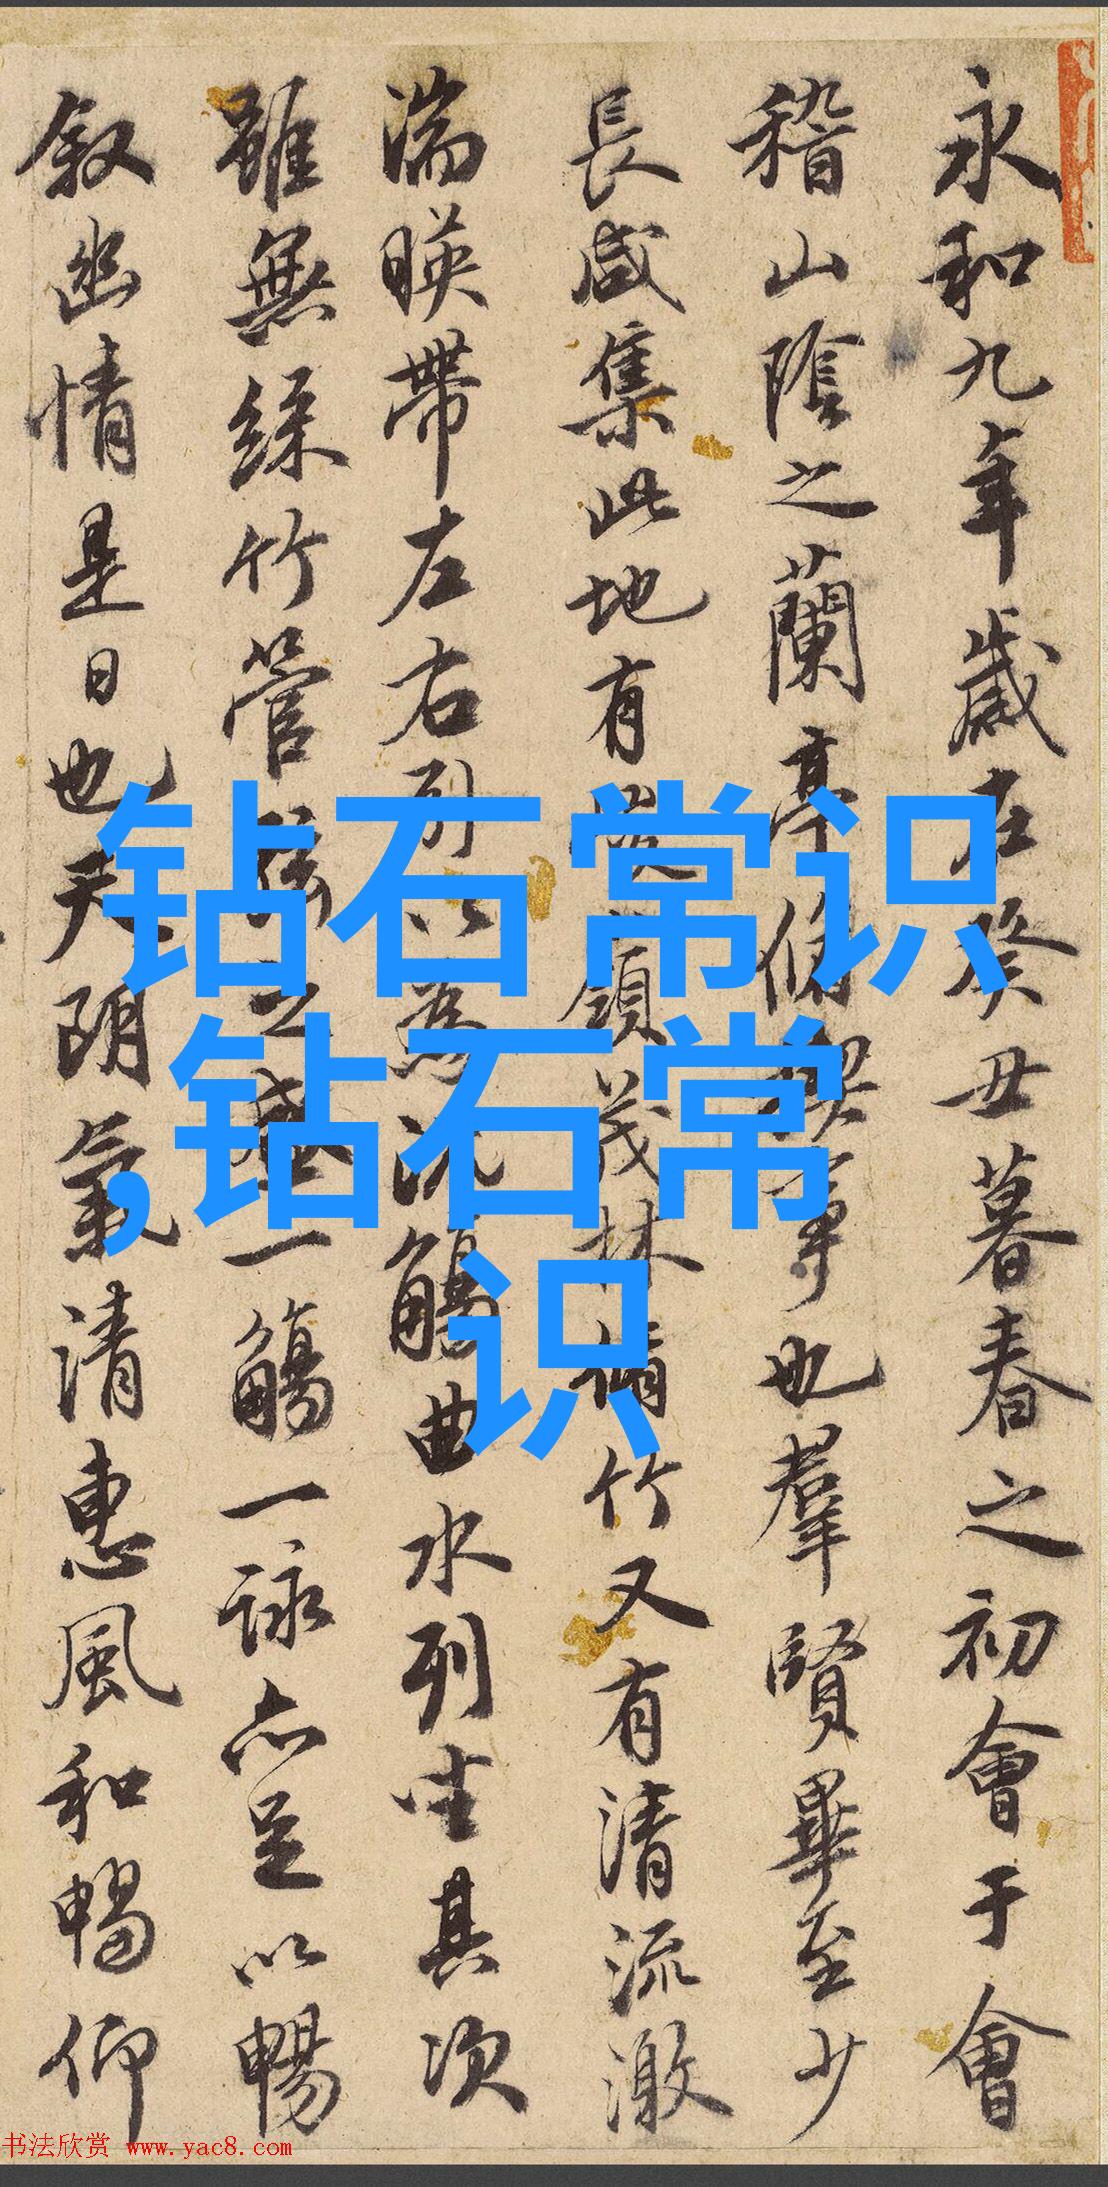 永和九年歲在癸丑暮春之初會于會
稽山陰之蘭亭脩禊事也羣賢畢至少
長咸集此地有峻領茂林脩竹又有清流激
湍暎帶左右引以為流觴曲水列坐其次
雖無絲竹管弦之盛一觴一詠亦足以暢
叙幽情是日也天朗氣清惠風和暢仰
钻石常识
,钻石常
识
书法欣赏 www.yac8.com